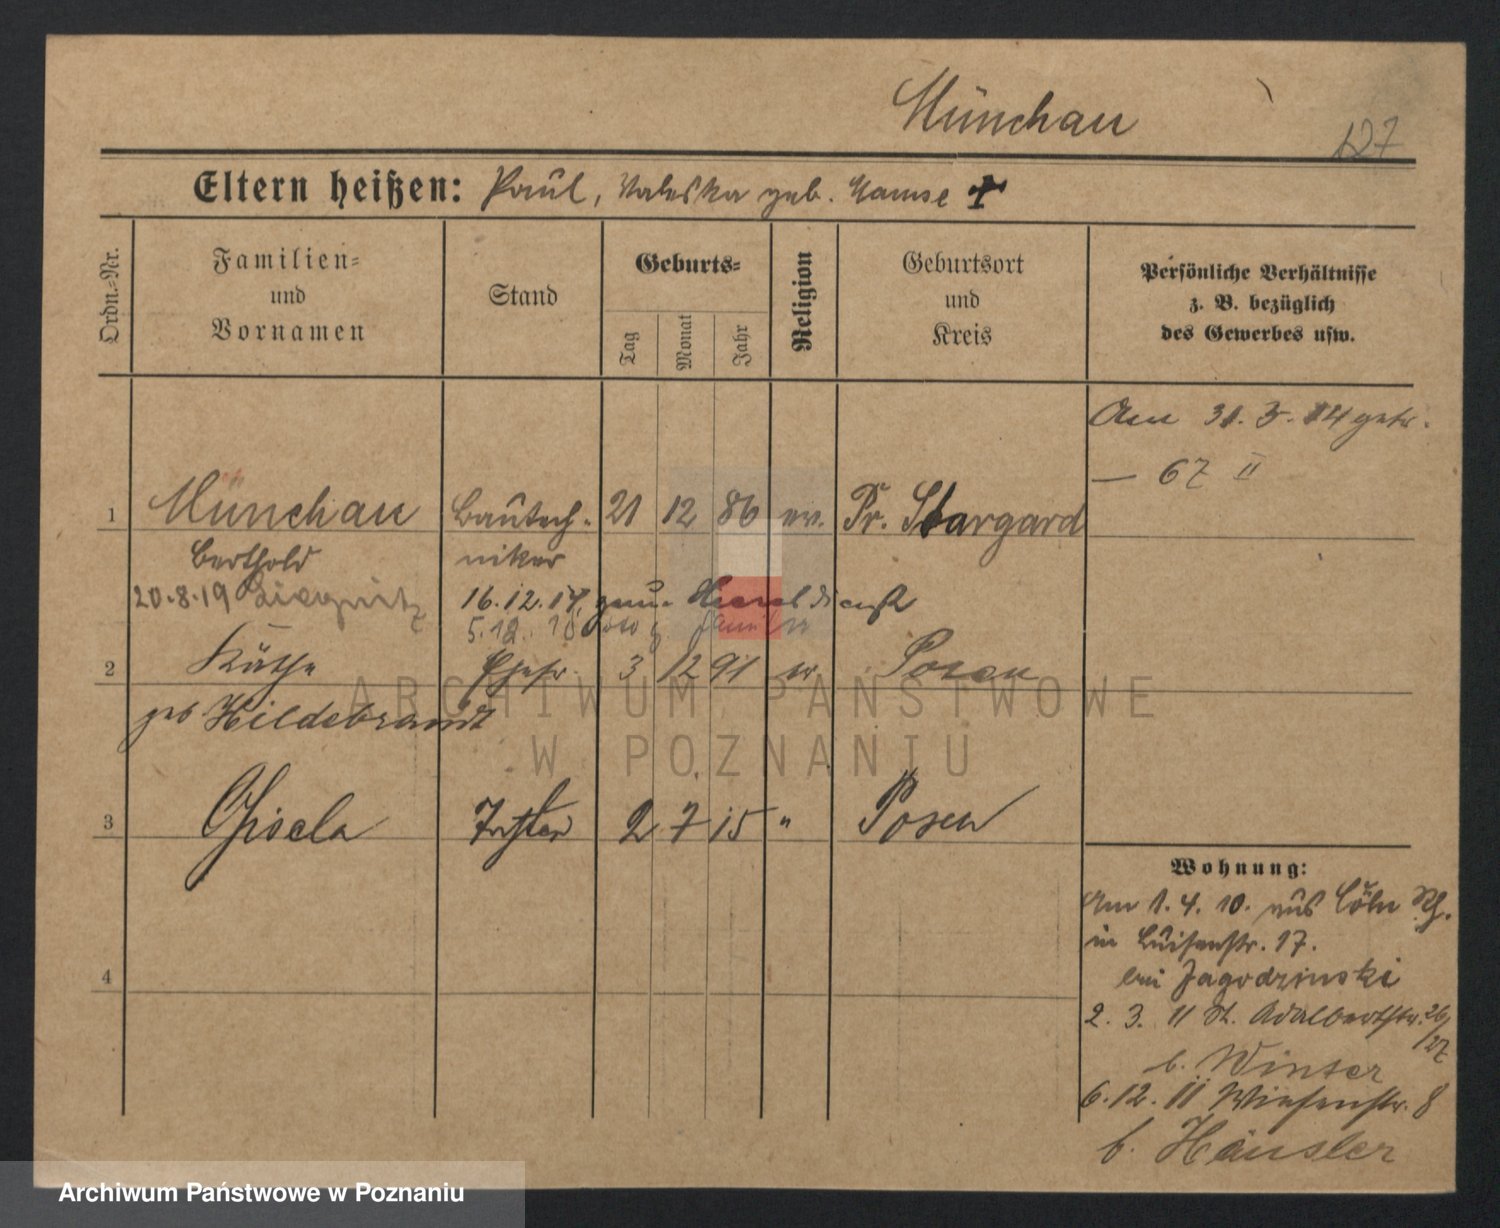 Münchau
127
Eltern heißen: Paul, Valeska geb. Mause †
Ordn.=Nr.
Familien=
und
Vornamen
Stand
Geburts=
Tag
Monat
Jahr
Religion
Geburtsort
und
Kreis
Persönliche Verhältnisse
z. B. bezüglich
des Gewerbes usw.
Am 31. 3. 14 getr.
— 67 II
1 Münchau Bautech- 21 12 86 ev. Pr. Stargard
Berthold niker
20.8.19 Liegnitz 16.12.14 zum Heeresdienst
5.12. 18 Familie
2 Käthe Ehefr. 3 12 91 ev Posen
geb Hildebrandt
3 Gisela Tochter 2 7 15 " Posen
4
Wohnung:
Am 1. 4. 10. aus Cöln Rh.
in Luisenstr. 17.
bei Jagodzinski
2. 3. 11 St. Adalbertstr. 26/27
b. Winter
6.12.11 Wiesenstr. 8
b. Häusler
ARCHIWUM PAŃSTWOWE
W POZNANIU
Archiwum Państwowe w Poznaniu